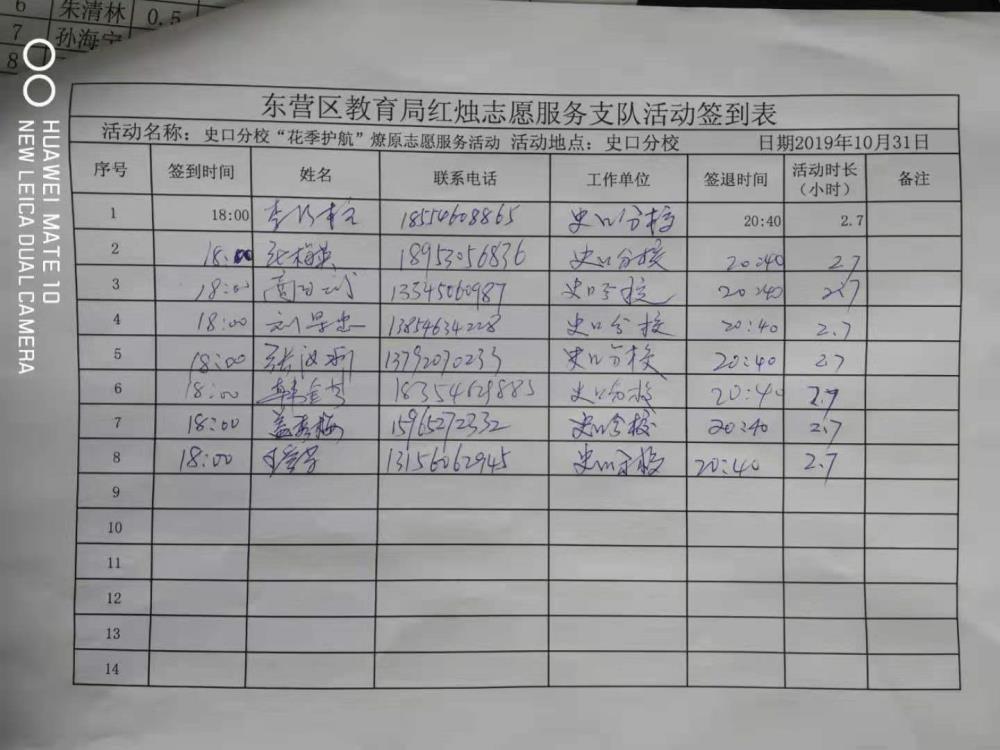 6 朱清林 0.5
7 孙海宁
8
HUAWEI MATE 10
NEW LEICA DUAL CAMERA
东营区教育局红烛志愿服务支队活动签到表
活动名称：史口分校“花季护航”燎原志愿服务活动 活动地点：史口分校 日期2019年10月31日
序号 签到时间 姓名 联系电话 工作单位 签退时间 活动时长（小时） 备注
1 18:00 18554608865 史口分校 20:40 2.7
2 18:00 张梅英 18953056836 史口分校 20:40 2.7
3 18:00 13345060987 史口分校 20:40 2.7
4 18:00 刘早忠 13854634228 史口分校 20:40 2.7
5 18:00 13792070233 史口分校 20:40 2.7
6 18:00 18354629885 史口分校 20:40 2.7
7 18:00 盖秀梅 15965272332 史口分校 20:40 2.7
8 18:00 13156062945 史口分校 20:40 2.7
9
10
11
12
13
14